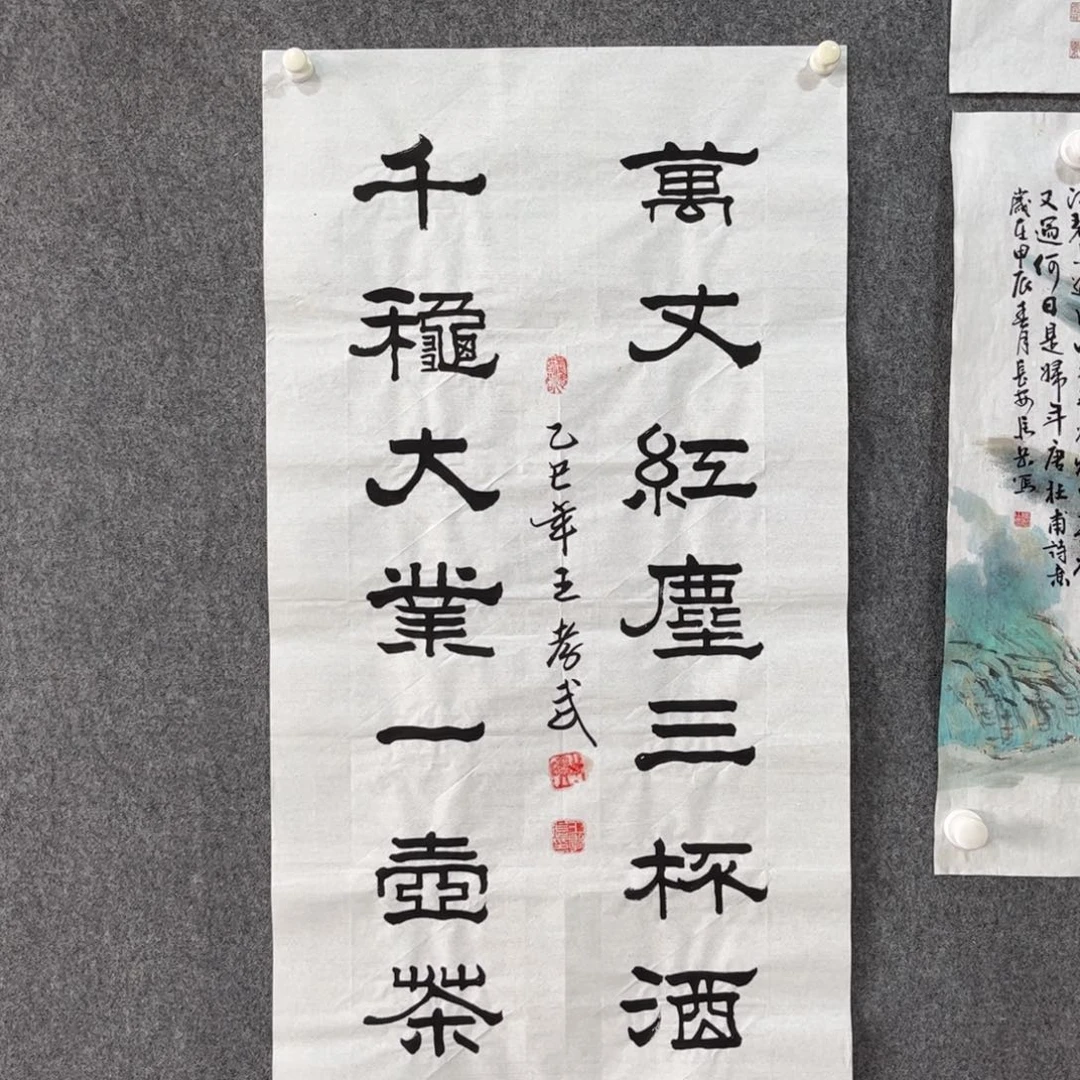 萬丈紅塵三杯酒
千龝大業一壺茶
乙巳年王孝武
又過何日是歸年唐杜甫詩意
歲在甲辰春月長安